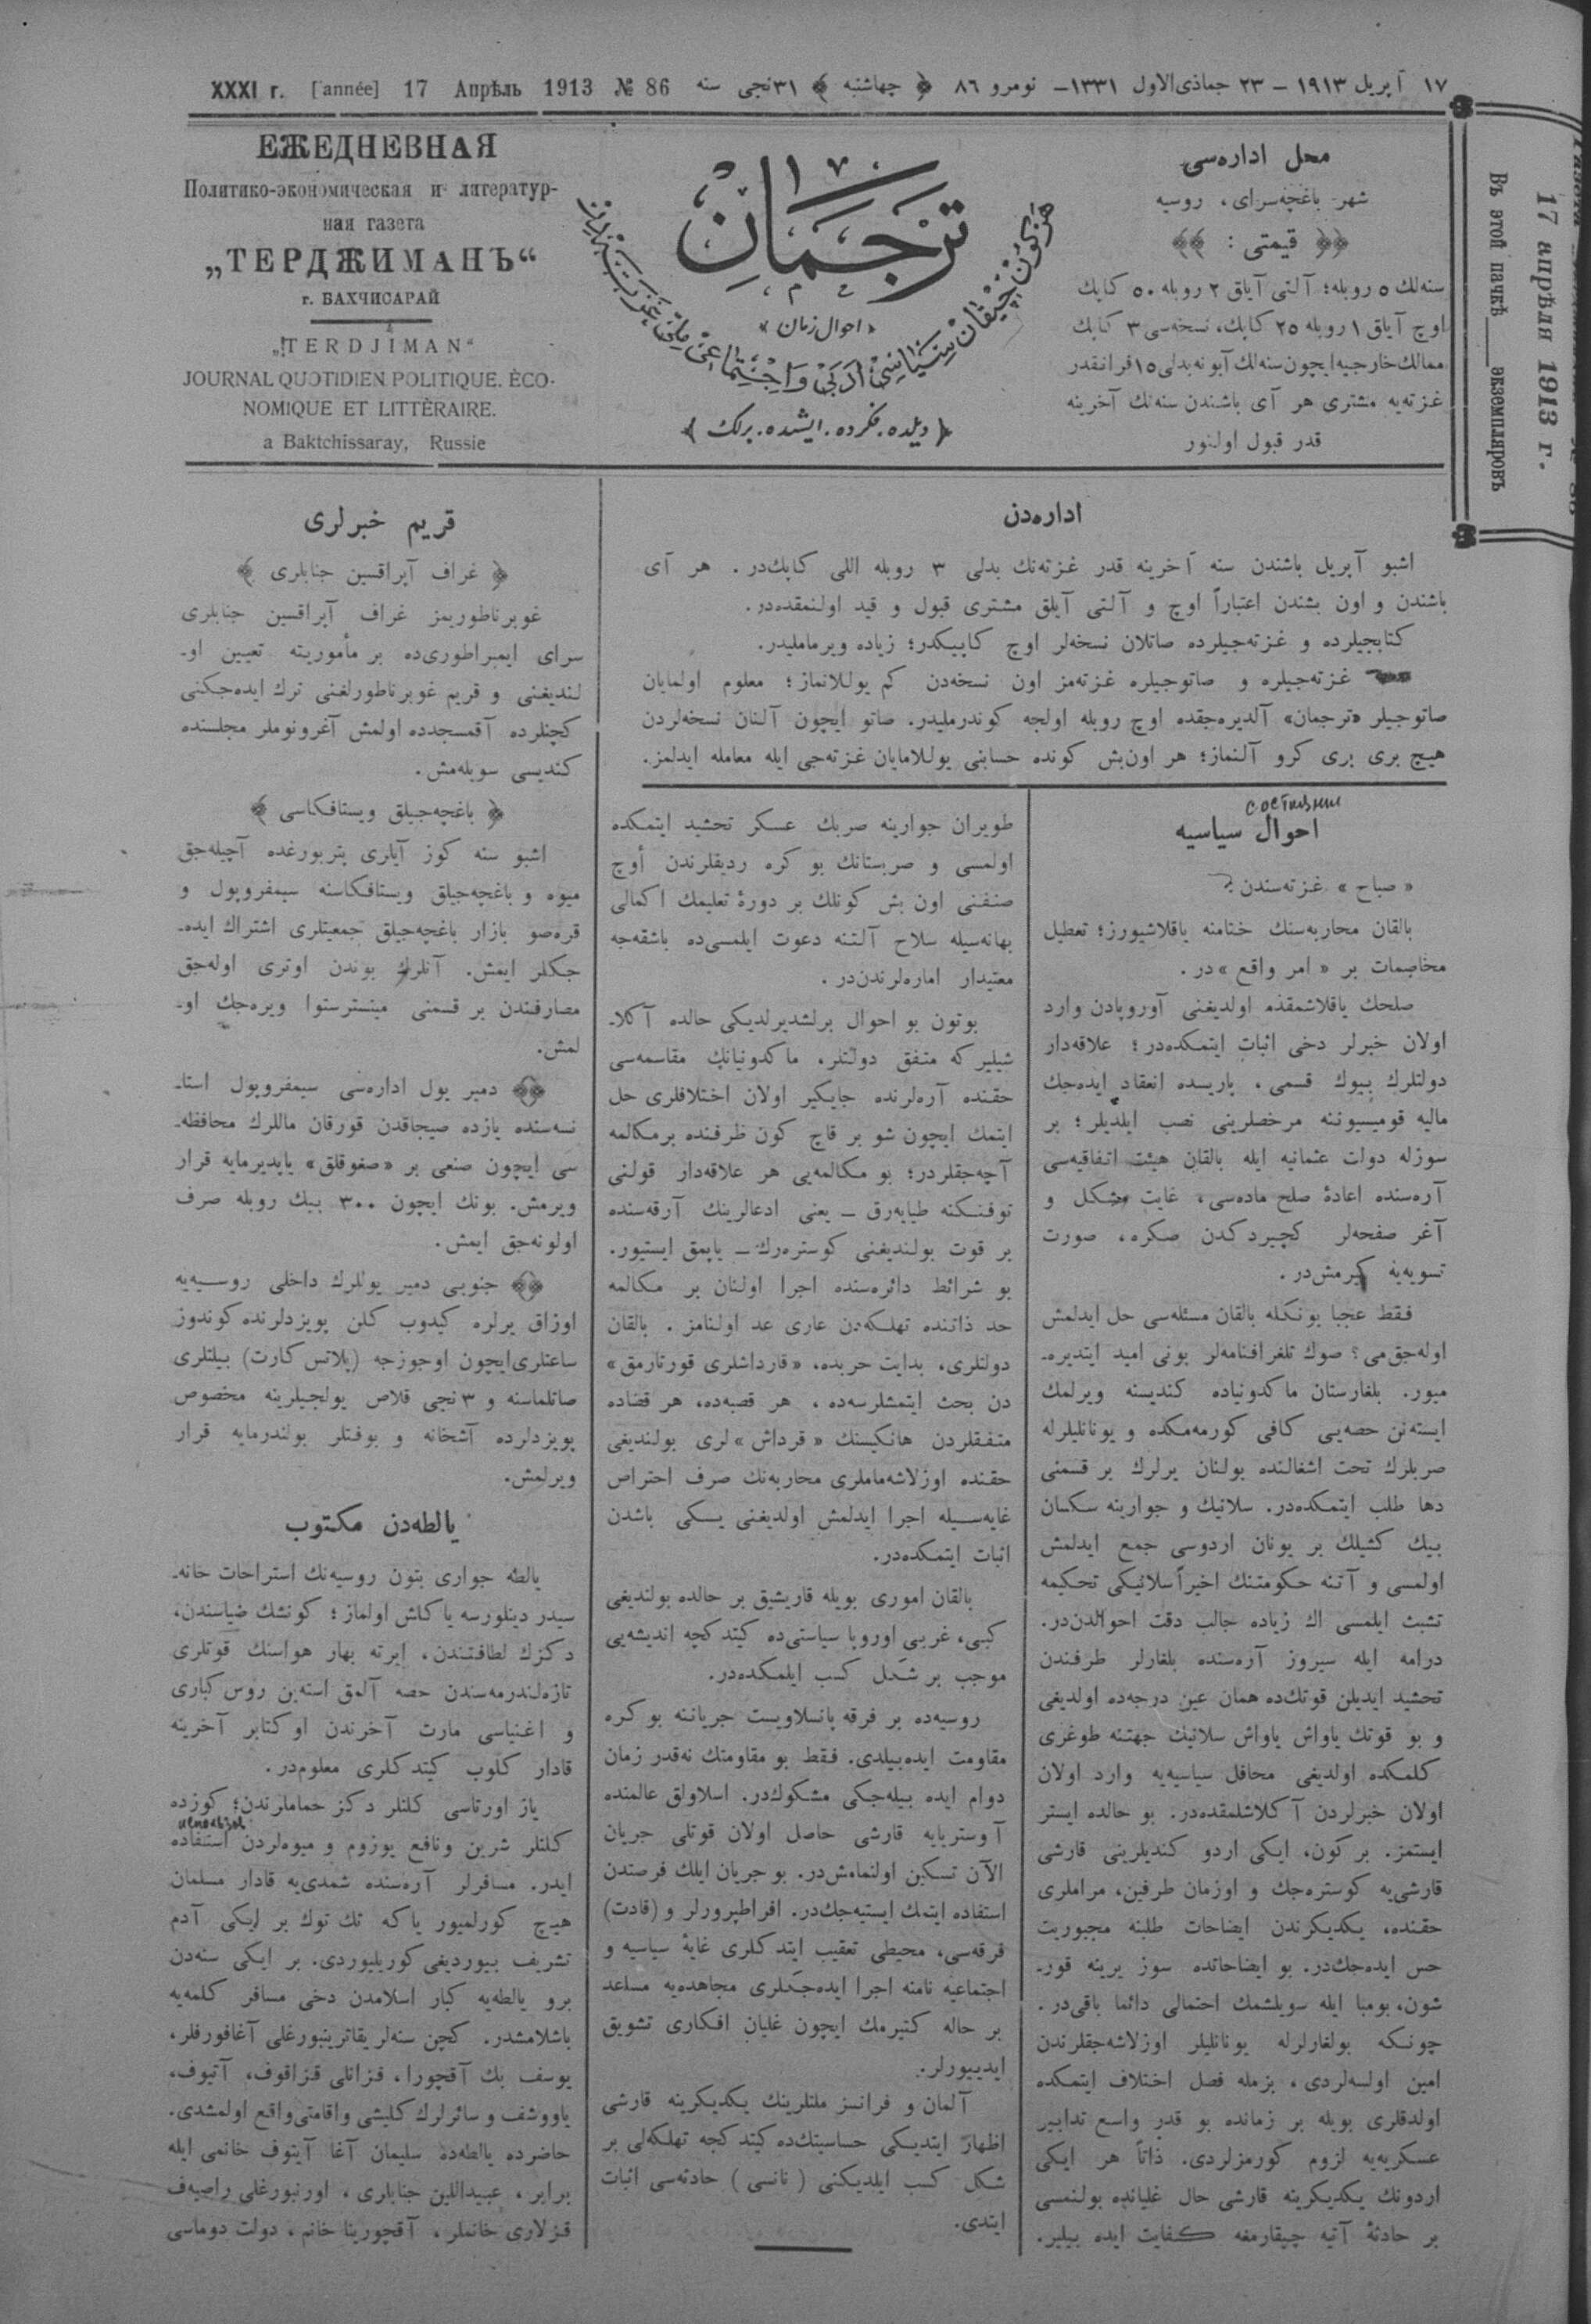 XXXI г. [année] 17 Апрѣль 1913 № 86
١٧ آپریل ١٩١٣ – ٢٣ جماذی‌الاول ١٣٣١– نومرو ٨٦ ﴿ چهاشنبه ﴾ ٣١نجی سنه
ЕЖЕДНЕВНАЯ
Политико-экономическая и литератур-
ная газета
„ТЕРДЖИМАНЪ“
г. БАХЧИСАРАЙ
„TERDJIMAN“
JOURNAL QUOTIDIEN POLITIQUE. ÈCO-
NOMIQUE ET LITTÈRAIRE.
a Baktchissaray, Russie
ترجمان
«احوال زمان»
﴿ دیلده. فکرده. ایشده. برلك ﴾
محل اداره‌سی
شهر باغچه‌سرای، روسیه
﴿﴿ قیمتی : ﴾﴾
سنه‌لك ٥ روبله؛ آلتی آیلق ٢ روبله ٥٠ کاپك
اوچ آیلق ١ روبله ٢٥ کاپك، نسخه‌سی ٣ کاپك
ممالك خارجیه‌ایچون سنه‌لك آبونه بدلی ١٥ فرانقدر
غزته‌یه مشتری هر آی باشندن سنه‌نك آخرینه
قدر قبول اولنور
17 апрѣля 1913 г.
Въ этой пачкѣ ____ экземпляровъ
اداره‌دن
اشبو آپریل باشندن سنه آخرینه قدر غزته‌نك بدلی ٣ روبله اللی کاپك‌در. هر آی
باشندن و اون بشندن اعتباراً اوچ و آلتی آیلق مشتری قبول و قید اولنمقده‌در.
کتابجیلرده و غزته‌جیلرده صاتلان نسخه‌لر اوچ کاپیکدر؛ زیاده ویرماملیدر.
غزته‌جیلره و صاتوجیلره غزته‌مز اون نسخه‌دن کم یوللانماز؛ معلوم اولمایان
صاتوجیلر «ترجمان» آلدیره‌جقده اوچ روبله اولجه کوندرملیدر. صاتو ایچون آلنان نسخه‌لردن
هیچ بری بری کرو آلنماز؛ هر اون‌بش کونده حسابنی یوللامایان غزته‌جی ایله معامله ایدلمز.
احوال سیاسیه
«صباح» غزته‌سندن
بالقان محاربه‌سنك ختامنه یاقلاشیورز؛ تعطیل
مخاصمات بر «امر واقع»در.
صلحك یاقلاشمقده اولدیغنی آوروپادن وارد
اولان خبرلر دخی اثبات ایتمکده‌در؛ علاقه‌دار
دولتلرك بیوك قسمی، پاریسده انعقاد ایده‌جك
مالیه قومیسیوننه مرخصلرینی نصب ایلدیلر؛ بر
سوزله دولت عثمانیه ایله بالقان هیئت اتفاقیه‌سی
آره‌سنده اعادهٔ صلح ماده‌سی، غایت مشکل و
آغر صفحه‌لر کچیردکدن صکره، صورت
تسویه‌یه کیرمش‌در.
فقط عجبا بونکله بالقان مسئله‌سی حل ایدلمش
اوله‌جق‌می؟ صوك تلغرافنامه‌لر بونی امید ایتدیره-
میور. بلغارستان ماکدونیاده کندیسنه ویرلمك
ایسته‌نن حصه‌یی کافی کورمه‌مکده و یونانلیلرله
صربلرك تحت اشغالنده بولنان یرلرك بر قسمنی
دها طلب ایتمکده‌در. سلانیك و جوارینه سکسان
بیك کشیلك بر یونان اردوسی جمع ایدلمش
اولمسی و آتنه حکومتنك اخیراً سلانیکی تحکیمه
تشبث ایلمسی اك زیاده جالب دقت احوالدن‌در.
درامه ایله سیروز آره‌سنده بلغارلر طرفندن
تحشید ایدیلن قوتك‌ده همان عین درجه‌ده اولدیغی
و بو قوتك یاواش یاواش سلانیك جهتنه طوغری
کلمکده اولدیغی محافل سیاسیه‌یه وارد اولان
اولان خبرلردن آکلاشلمقده‌در. بو حالده ایستر
ایستمز. بر کون، ایکی اردو کندیلرینی قارشی
قارشی‌یه کوستره‌جك و اوزمان طرفین، مراملری
حقنده، یکدیکرندن ایضاحات طلبنه مجبوریت
حس ایده‌جك‌در. بو ایضاحاتده سوز یرینه قور-
شون، بومبا ایله سویلشمك احتمالی دائما باقی‌در.
چونکه بولغارلرله یونانلیلر اوزلاشه‌جقلرندن
امین اولسه‌لردی، بزمله فصل اختلاف ایتمکده
اولدقلری بویله بر زمانده بو قدر واسع تدابیر
عسکریه‌یه لزوم کورمزلردی. ذاتاً هر ایکی
اردونك یکدیکرینه قارشی حال غلیانده بولنمسی
بر حادثهٔ آنیه چیقارمغه کفایت ایده بیلیر.
طویران جوارینه صربك عسکر تحشید ایتمکده
اولمسی و صربستانك بو کره ردیفلرندن اوچ
صنفنی اون بش کونلك بر دورهٔ تعلیمك اکمالی
بهانه‌سیله سلاح آلتنه دعوت ایلمسی‌ده باشقه‌جه
معتیدار اماره‌لرندن‌در.
بوتون بو احوال برلشدیرلدیکی حالده آکلا-
شیلیرکه متفق دولتلر، ماکدونیانك مقاسمه‌سی
حقنده آره‌لرنده جایکیر اولان اختلافلری حل
ایتمك ایچون شو بر قاچ کون ظرفنده برمکالمه
آچه‌جقلردر؛ بو مکالمه‌یی هر علاقه‌دار قولنی
توفنکنه طیایه‌رق – یعنی ادعالرینك آرقه‌سنده
بر قوت بولندیغنی کوستره‌رك – یاپمق ایستیور.
بو شرائط دائره‌سنده اجرا اولنان بر مکالمه
حد ذاتنده تهلکه‌دن عاری عد اولنامز. بالقان
دولتلری، بدایت حربده، «قارداشلری قورتارمق»
دن بحث ایتمشلرسه‌ده، هر قصبه‌ده، هر قضاده
متفقلردن هانکیسنك «قرداش»لری بولندیغی
حقنده اوزلاشه‌ماملری محاربه‌نك صرف احتراص
غایه‌سیله اجرا ایدلمش اولدیغنی یکی باشدن
اثبات ایتمکده‌در.
بالقان اموری بویله قاریشیق بر حالده بولندیغی
کبی، غربی اوروپا سیاستی‌ده کیتدکچه اندیشه‌یی
موجب بر شکل کسب ایلمکده‌در.
روسیه‌ده بر فرقه پانسلاویست جریاننه بو کره
مقاومت ایده‌بیلدی. فقط بو مقاومتك نه‌قدر زمان
دوام ایده بیله‌جکی مشکوك‌در. اسلاولق عالمنده
آوستریایه قارشی حاصل اولان قوتلی جریان
الآن تسکین اولنمامش‌در. بو جریان ایلك فرصتدن
استفاده ایتمك ایستیه‌جك‌در. افراطپرورلر و (قادت)
فرقه‌سی، محیطی تعقیب ایتدکلری غایهٔ سیاسیه و
اجتماعیه نامنه اجرا ایده‌جکلری مجاهده‌یه مساعد
بر حاله کتیرمك ایچون غلیان افکاری تشویق
ایدیيورلر.
آلمان و فرانسز ملتلرینك یکدیکرینه قارشی
اظهار ایتدیکی حساسیتك‌ده کیتدکجه تهلکه‌لی بر
شکل کسب ایلدیکنی (نانسی) حادثه‌سی اثبات
ایتدی.
قریم خبرلری
﴿ غراف آپراقسین جنابلری ﴾
غوبرناطوریمز غراف آپراقسین جنابلری
سرای ایمپراطوری‌ده بر مأموریته تعیین او-
لندیغنی و قریم غوبرناطورلغنی ترك ایده‌جکنی
کچنلرده آقمسجدده اولمش آغرونوملر مجلسنده
کندیسی سویله‌مش.
﴿ باغچه‌جیلق ویستافکاسی ﴾
اشبو سنه کوز آیلری پتربورغده آچیله‌جق
میوه و باغچه‌جیلق ویستافکاسنه سیمفروپول و
قره‌صو بازار باغچه‌جیلق جمعیتلری اشتراك ایده-
جکلر ایمش. آنلرك بوندن اوتری اوله‌جق
مصارفندن بر قسمنی مینسترستوا ویره‌جك او-
لمش.
دمیر یول اداره‌سی سیمفروپول استا-
نسه‌سنده یازده صیجاقدن قورقان ماللرك محافظه-
سی ایچون صنعی بر «صغوقلق» یاپدیرمایه قرار
ویرمش. بونك ایچون ٣٠٠ بیك روبله صرف
اولونه‌جق ایمش.
جنوبی دمیر یوللرك داخلی روسیه‌یه
اوزاق یرلره کیدوب کلن پویزدلرنده کوندوز
ساعتلری‌ایچون اوجوزجه (پلاتس کارت) بیلتلری
صاتلماسنه و ٣نجی قلاص یولجیلرینه مخصوص
پویزدلرده آشخانه و بوفتلر بولندرمایه قرار
ویرلمش.
یالطه‌دن مکتوب
یالطه جواری بتون روسیه‌نك استراحات خانه-
سیدر دینلورسه یاکلش اولماز؛ کونشك ضیاسندن،
دکزك لطافتندن، ایرته بهار هواسنك قوتلری
تازه‌لندرمه‌سندن حصه آلمق استه‌ین روس کباری
و اغنیاسی مارت آخرندن اوکتابر آخرینه
قادار کلوب کیتدکلری معلوم‌در.
یاز اورتاسی کلنلر دکز حماملرندن؛ کوزده
کلنلر شرین ونافع یوزوم و میوه‌لردن استفاده
ایدر. مسافرلر آره‌سنده شمدی‌یه قادار مسلمان
هیچ کورلمیور یاکه تك توك بر ایکی آدم
تشریف بیوردیغی کوریلیوردی. بر ایکی سنه‌دن
برو یالطه‌یه کبار اسلامدن دخی مسافر کلمه‌یه
باشلامشدر. کچن سنه‌لر یقاترینبورغلی آغافورفلر،
یوسف بك آقچورا، قزانلی قزاقوف، آتیوف،
یاووشف و سائرلرك کلیشی و اقامتی واقع اولمشدی.
حاضرده یالطه‌ده سلیمان آغا آیتوف خانمی ایله
برابر، عبیداللین جنابلری، اورنبورغلی راصیه‌ف
قزلاری خانملر، آقچورینا خانم، دولت دوماسی